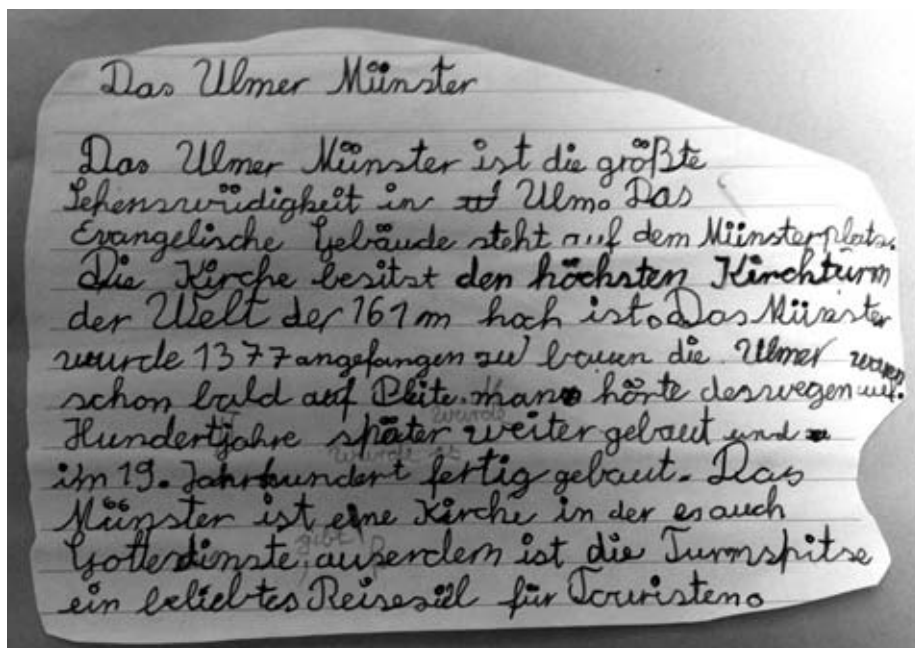 Das Ulmer Münster
Das Ulmer Münster ist die größte
Sehenswürdigkeit in Ulm. Das
Evangelische Gebäude steht auf dem Münsterplatz.
Die Kirche besitzt den höchsten Kirchturm
der Welt der 161 m hoch ist. Das Münster
wurde 1377 angefangen zu bauen die Ulmer waren
schon bald auf Pleite. man hörte deswegen auf.
wurde
Hundertjahre später weiter gebaut und
wurde es
im 19. Jahrhundert fertig gebaut. Das
Münster ist eine Kirche in der es auch
gibt
Gottesdienste, auserdem ist die Turmspitze
ein beliebtes Reiseziel für Touristen.